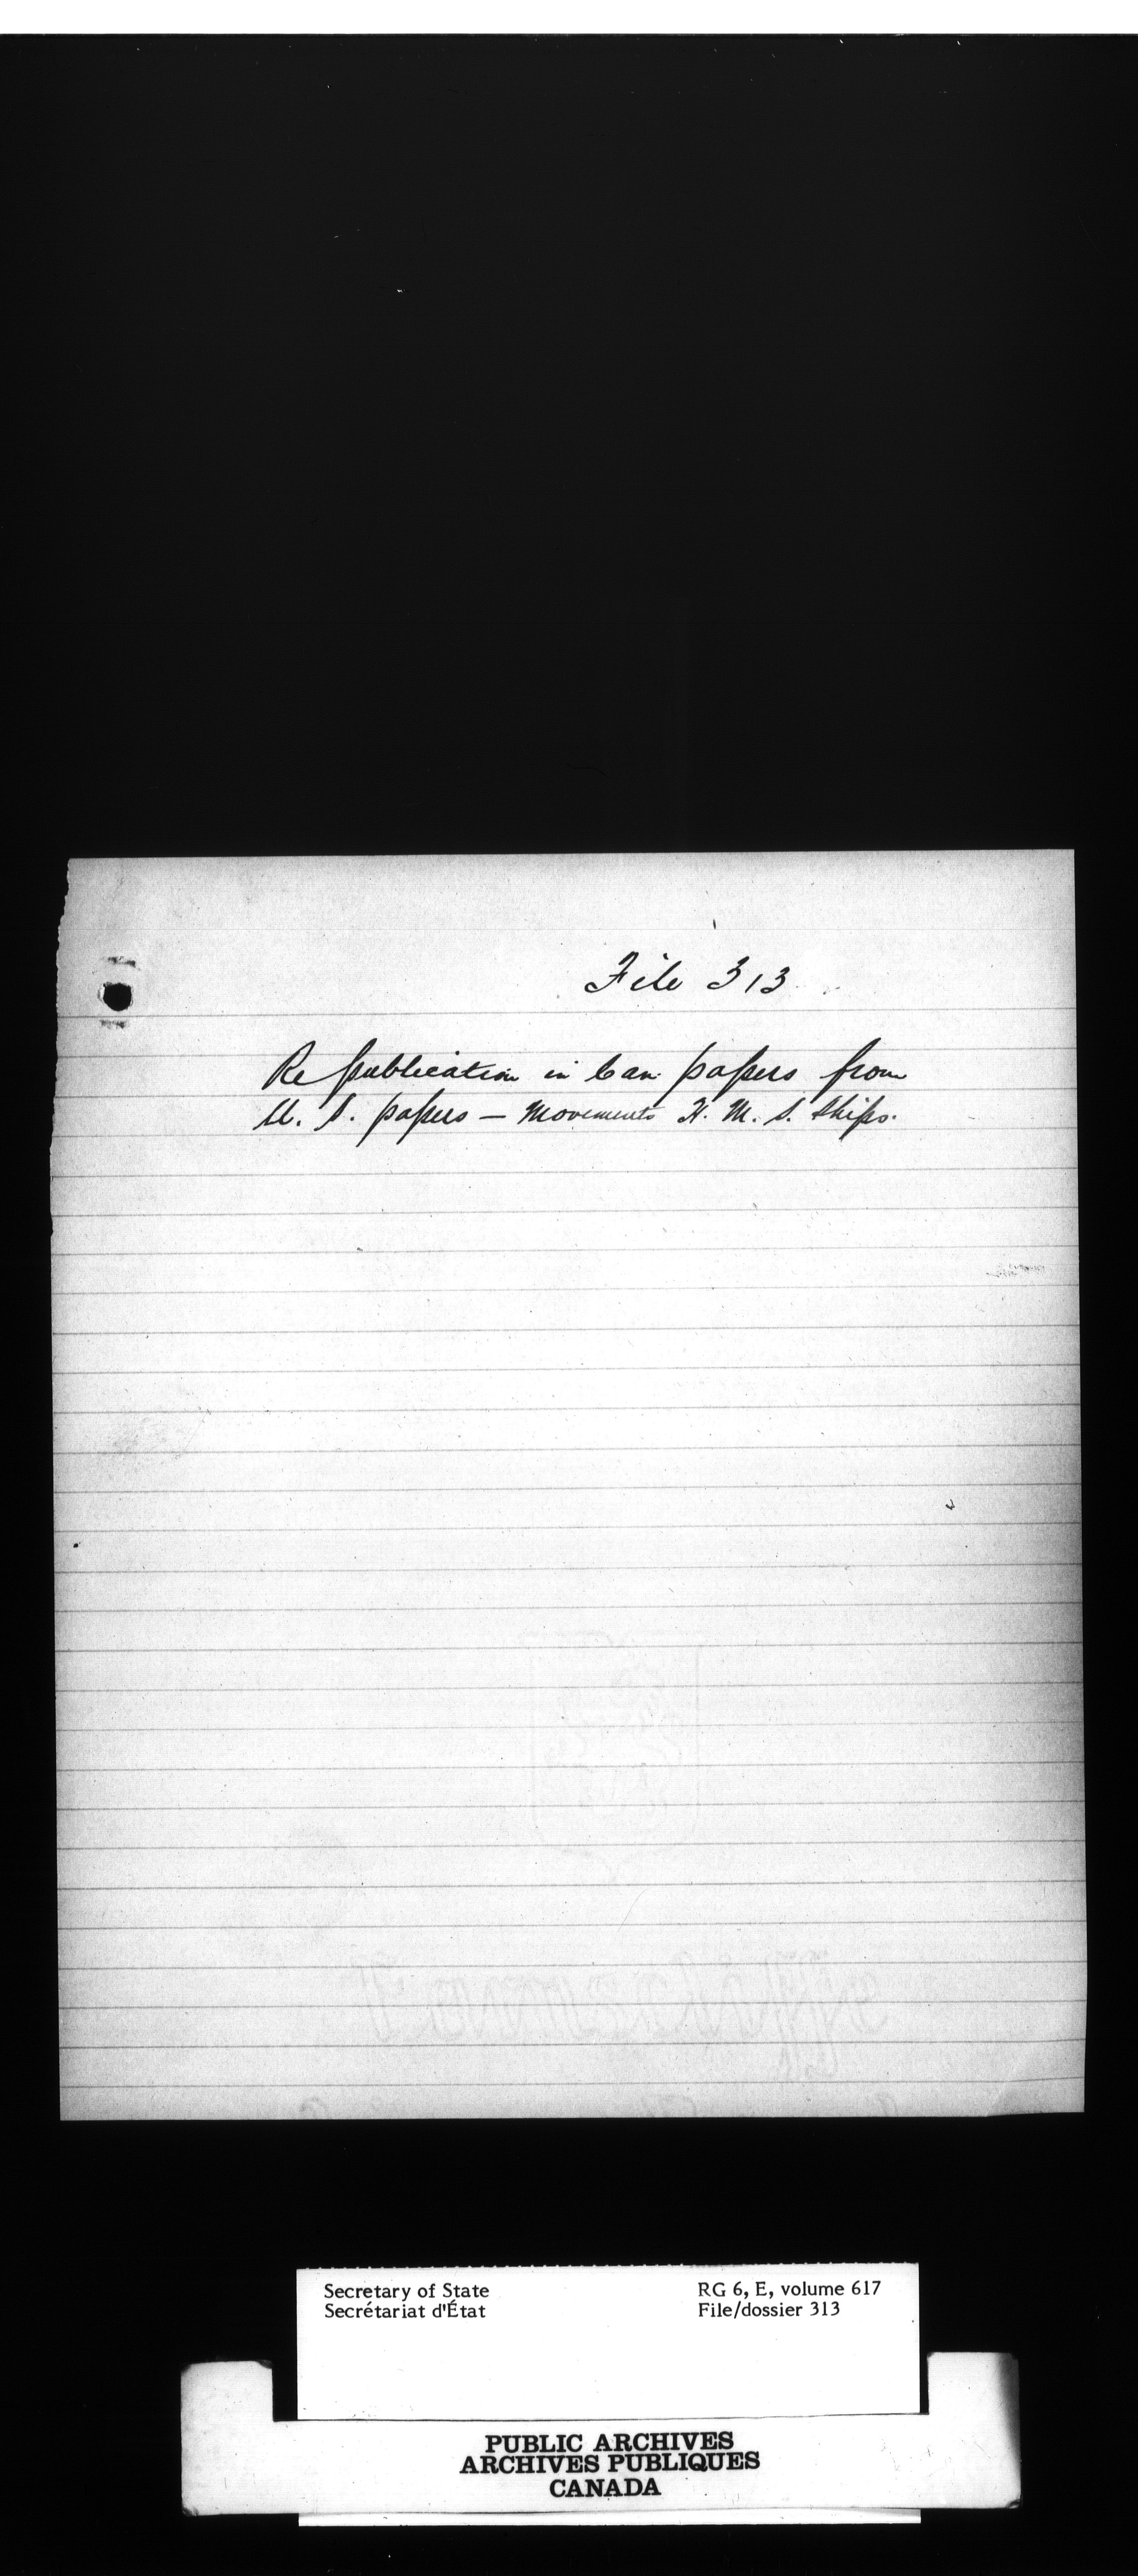 File 313
Re publication in Can papers from
U. S. papers — Movements H. M. S. Ships.
Secretary of State
Secrétariat d'État
RG 6, E, volume 617
File/dossier 313
PUBLIC ARCHIVES
ARCHIVES PUBLIQUES
CANADA